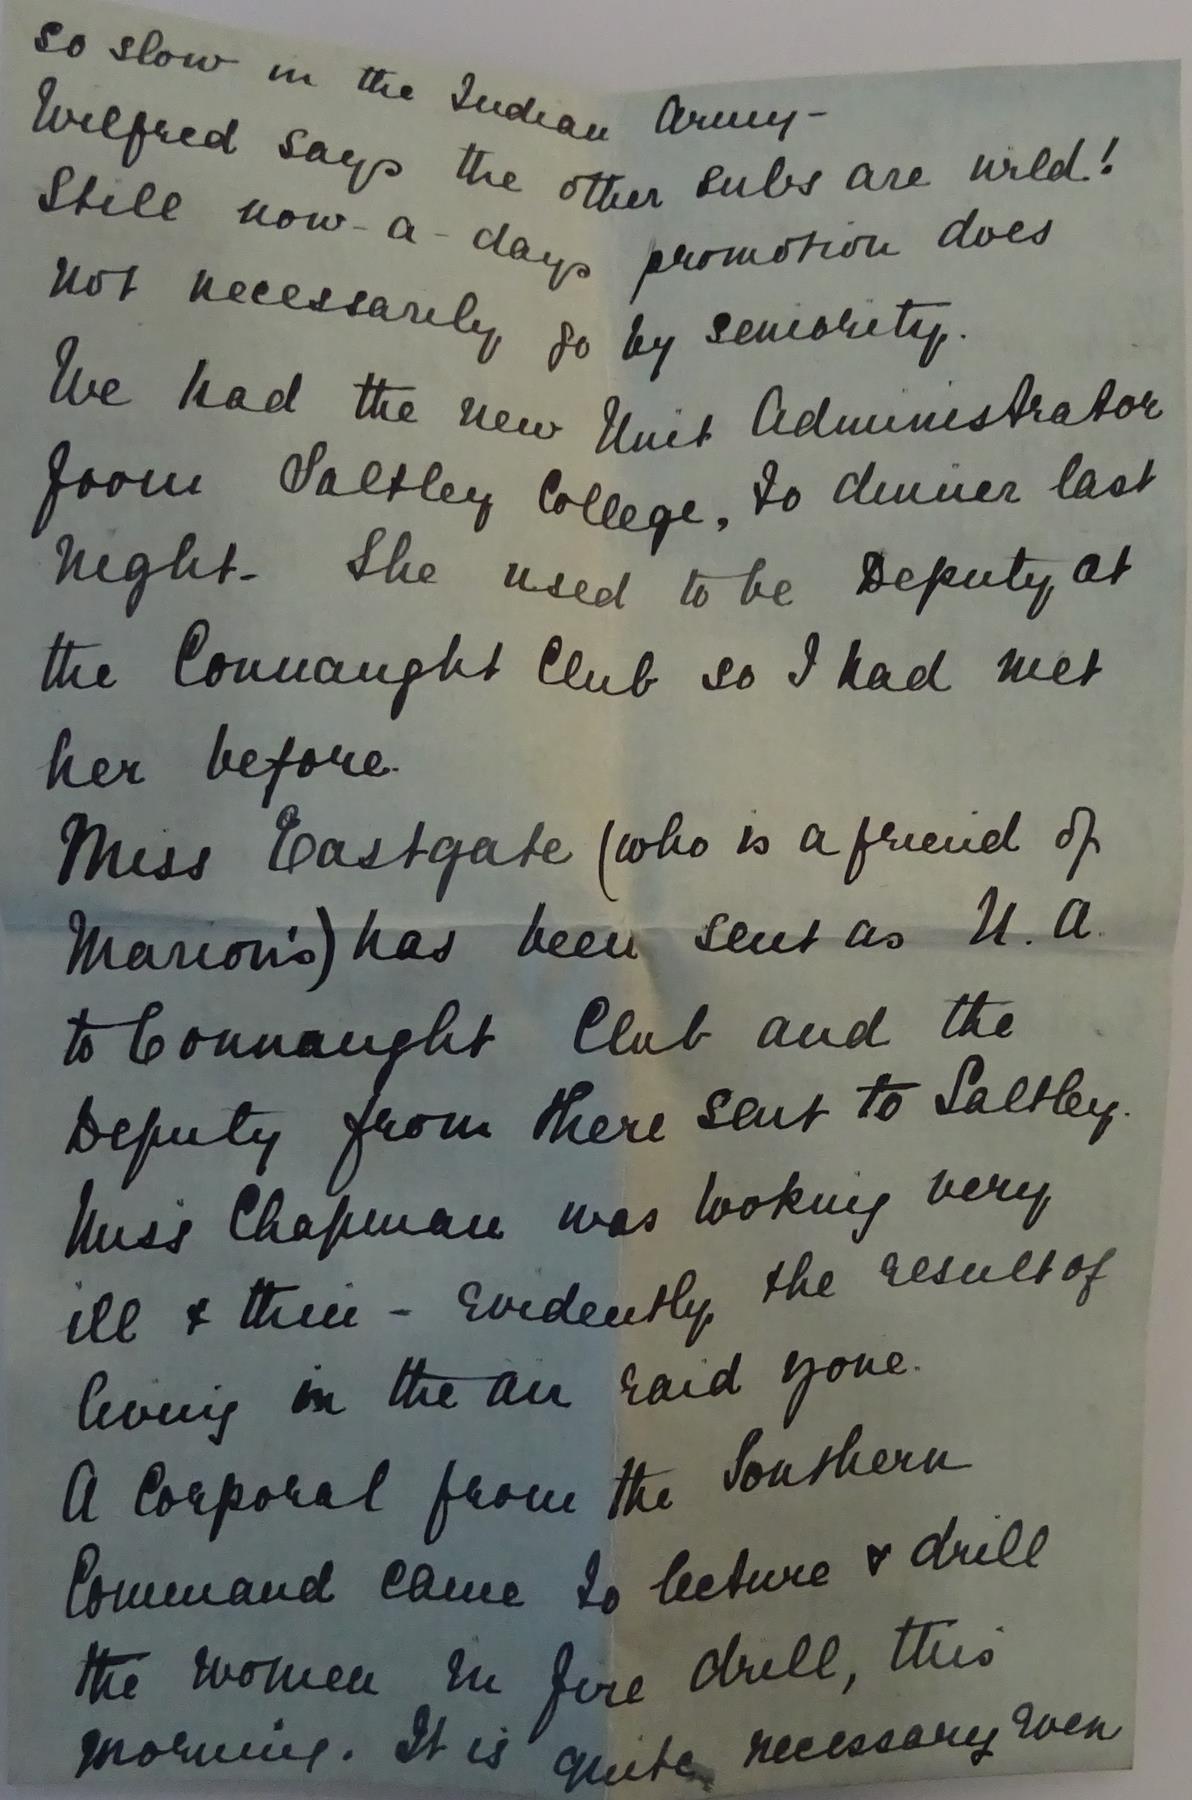 so slow in the Indian Army -
Wilfred says the other subs are wild!
Still now-a-days promotion does
not necessarily go by seniority.
We had the new Unit Administrator
from Saltley College, to dinner last
night - She used to be Deputy at
the Connaught Club so I had met
her before.
Miss Eastgate (who is a friend of
Marion's) has been sent as U.A.
to Connaught Club and the
Deputy from there sent to Saltley.
Miss Chapman was looking very
ill & thin - evidently the result of
living in the air raid zone.
A Corporal from the Southern
Command came to lecture & drill
the women in fire drill, this
morning. It is quite necessary even